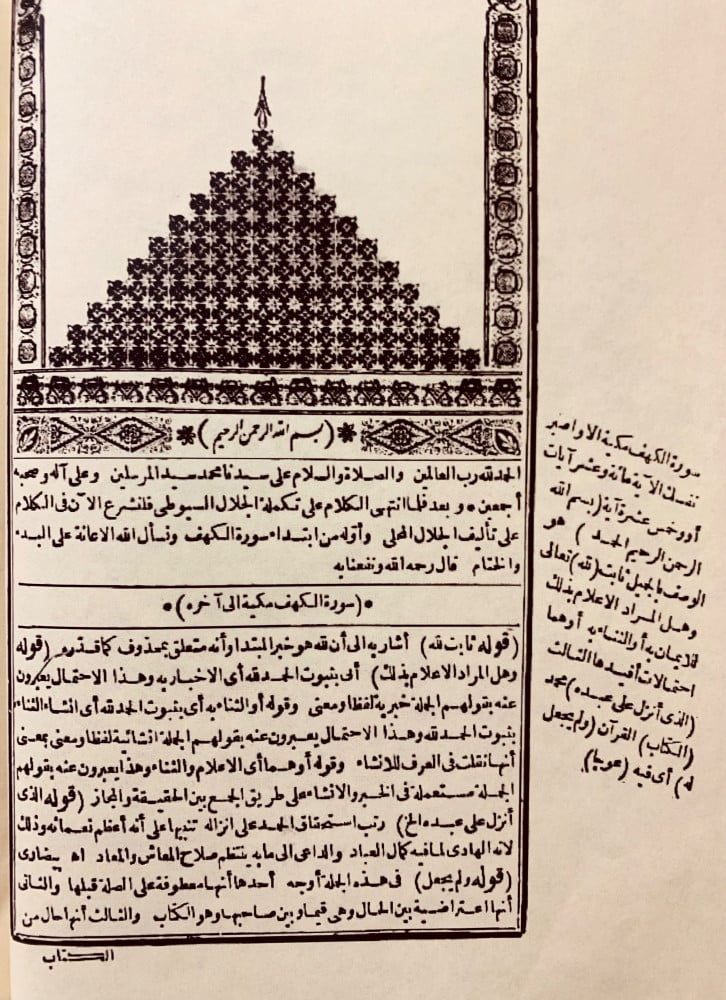 (بسم الله الرحمن الرحيم)
الحمد لله رب العالمين والصلاة والسلام على سيدنا محمد سيد المرسلين وعلى آله وصحبه
أجمعين * وبعد فلما انتهى الكلام على تكملة الجلال السيوطى فلنشرع الآن فى الكلام
على تأليف الجلال المحلى وأوّله من ابتداء سورة الكهف ونسأل الله الاعانة على البدء
والختام قال رحمه الله ونفعنا به
*(سورة الكهف مكية الى آخره)*
(قوله ثابت لله) أشار به الى أن لله هو خبر المبتدا وأنه متعلق بمحذوف كما قدّره (قوله
وهل المراد الاعلام بذلك) أى بثبوت الحمد لله أى الاخبار به وهذا الاحتمال يعبرون
عنه بقولهم الجملة خبرية لفظا ومعنى وقوله أو الثناء به أى بثبوت الحمد لله أى انشاء الثناء
بثبوت الحمد لله وهذا الاحتمال يعبرون عنه بقولهم الجملة انشائية لفظا ومعنى بمعنى
أنها نقلت فى العرف للانشاء وقوله أو هما أى الاعلام والثناء وهذا يعبرون عنه بقولهم
الجملة مستعملة فى الخبر والانشاء على طريق الجمع بين الحقيقة والمجاز (قوله الذى
أنزل على عبده الخ) رتب استحقاق الحمد على انزاله تنبيها على أنه أعظم نعمائه وذلك
لانه الهادى لما فيه كمال العباد والداعى الى ما به ينتظم صلاح المعاش والمعاد اه بيضاوى
(قوله ولم يجعل) فى هذه الجملة أوجه أحدها أنها معطوفة على الصلة قبلها والثانى
أنها اعتراضية بين الحال وهى قيما وبين صاحبها وهو الكتاب والثالث أنها حال من
الكتاب
سورة الكهف مكية الا واصبر
نفسك الآية مائة وعشر آيات
أو وخمس عشرة آية (بسم الله
الرحمن الرحيم الحمد) هو
الوصف بالجميل ثابت (لله) تعالى
وهل المراد الاعلام بذلك
للايمان به أو الثناء به أو هما
احتمالات أفيدها الثالث
(الذى أنزل على عبده) محمد
(الكتاب) القرآن (ولم يجعل
له) أى فيه (عوجا)